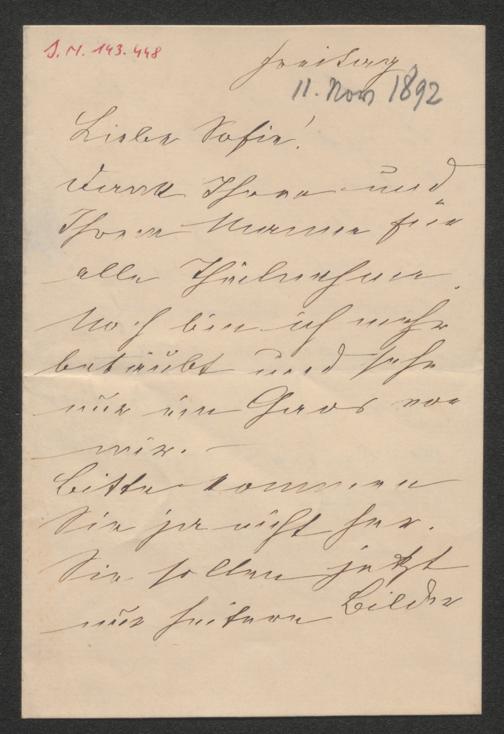 J. N. 143.448
Freitag
11. Nov 1892
Liebe Sofie!
Dank Ihnen und
Ihrem Manne für
alle Theilnahme.
Noch bin ich mehr
betäubt und sehe
nur ein Chaos vor
mir. –
Bitte kommen
Sie ja nicht her.
Sie sollen jetzt
nur heitere Bilder